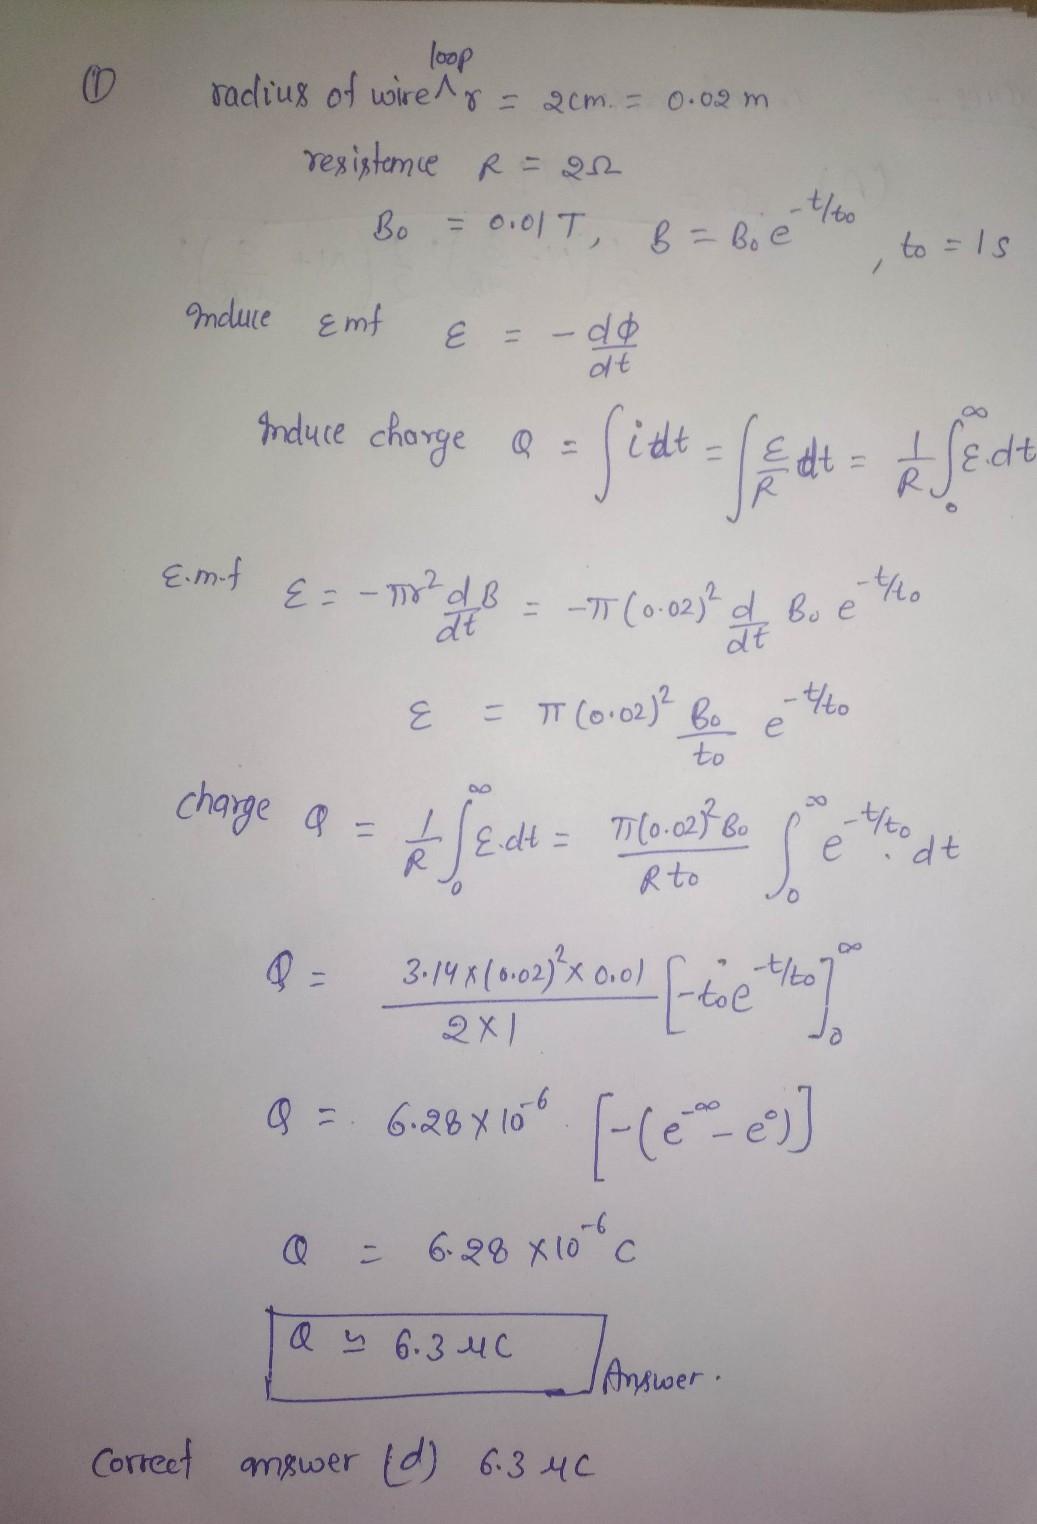 ① radius of wire ^loop r = 2cm. = 0.02 m
resistance R = 2Ω
B₀ = 0.01 T, B = B₀ e^(-t/t₀), t₀ = 1 s
Induce Emf ε = - dϕ/dt
Induce charge Q = ∫ i dt = ∫ ε/R dt = 1/R ∫₀^∞ ε.dt
E.m.f ε = - πr² dB/dt = -π (0.02)² d/dt B₀ e^(-t/t₀)
ε = π (0.02)² B₀/t₀ e^(-t/t₀)
charge Q = 1/R ∫₀^∞ ε.dt = π(0.02)² B₀ / R t₀ ∫₀^∞ e^(-t/t₀) . dt
Q = 3.14 x (0.02)² x 0.01 / 2 x 1 [-t₀ e^(-t/t₀)]₀^∞
Q = 6.28 x 10^-6 [-(e^-∞ - e⁰)]
Q = 6.28 x 10^-6 C
Q ≃ 6.3 μC Answer.
Correct answer (d) 6.3 μC